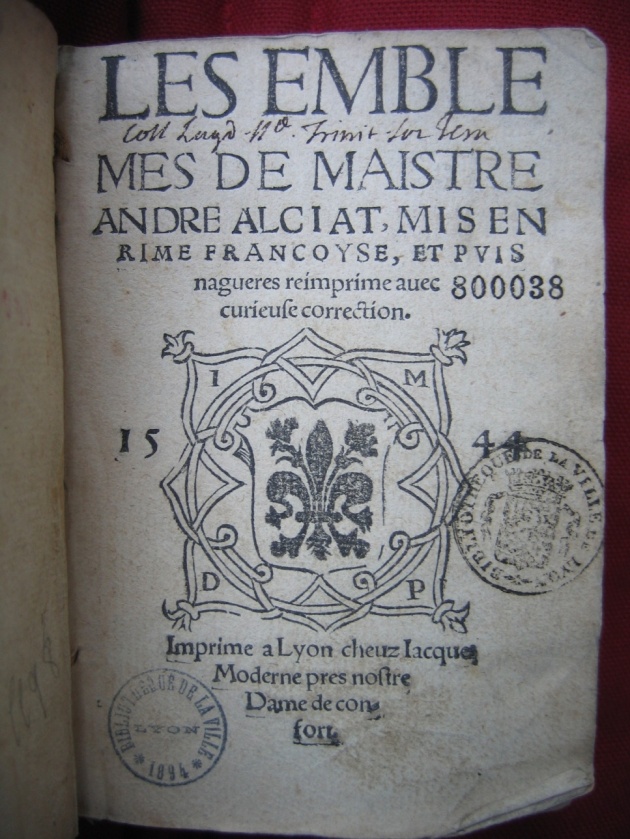 LES EMBLE
Coll Lugd Trinit Soc Jesu
MES DE MAISTRE
ANDRE ALCIAT, MIS EN
RIME FRANCOYSE, ET PVIS
nagueres reimprime auec 800038
curieuſe correction.
I M
15 44
D P
BIBLIOTHEQUE DE LA VILLE DE LYON
Imprime a Lyon cheuz Iacques
Moderne pres noſtre
Dame de con
fort.
BIBLIOTHEQUE DE LA VILLE
LYON
1894